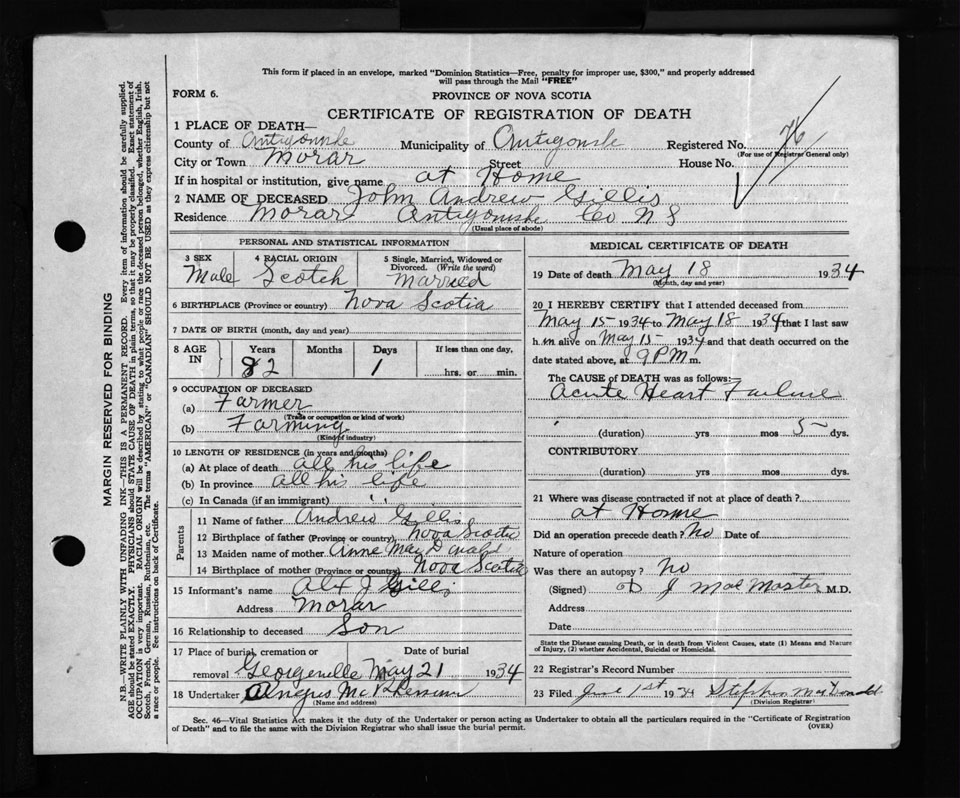 This form if placed in an envelope, marked "Dominion Statistics—Free, penalty for improper use, $300," and properly addressed
will pass through the Mail "FREE"
FORM 6. PROVINCE OF NOVA SCOTIA
CERTIFICATE OF REGISTRATION OF DEATH
1 PLACE OF DEATH—
County of Antigonishe Municipality of Antigonishe Registered No. 76
(For use of Registrar General only)
City or Town Morar Street House No.
If in hospital or institution, give name at Home
2 NAME OF DECEASED John Andrew Gillis
Residence Morar Antigonishe Co N S
(Usual place of abode)
PERSONAL AND STATISTICAL INFORMATION
3 SEX 4 RACIAL ORIGIN 5 Single, Married, Widowed or Divorced. (Write the word)
Male Scotch Married
6 BIRTHPLACE (Province or country) Nova Scotia
7 DATE OF BIRTH (month, day and year)
8 AGE IN Years Months Days If less than one day,
82 1 hrs. or min.
9 OCCUPATION OF DECEASED
(a) Farmer
(Trade or occupation or kind of work)
(b) Farming
(Kind of industry)
10 LENGTH OF RESIDENCE (in years and months)
(a) At place of death all his life
(b) In province all his life
(c) In Canada (if an immigrant) ' '
Parents
11 Name of father Andrew Gillis
12 Birthplace of father (Province or country) Nova Scotia
13 Maiden name of mother Anne MacDonald
14 Birthplace of mother (Province or country) Nova Scotia
15 Informant's name Alex J Gillis
Address Morar
16 Relationship to deceased Son
17 Place of burial, cremation or removal Date of burial
Georgeville May 21 1934
18 Undertaker Angus
(Name and address)
MEDICAL CERTIFICATE OF DEATH
19 Date of death May 18 1934
(Month, day and year)
20 I HEREBY CERTIFY that I attended deceased from
May 15 1934 to May 18 1934 that I last saw
h im alive on May 15 1934 and that death occurred on the
date stated above, at 9 PM m.
The CAUSE of DEATH was as follows:—
Acute Heart Failure
(duration) yrs mos 5 dys.
CONTRIBUTORY
(duration) yrs mos dys.
21 Where was disease contracted if not at place of death?
at Home
Did an operation precede death? No Date of
Nature of operation
Was there an autopsy? No
(Signed) D J MacMaster M.D.
Address
Date
State the Disease causing Death, or in death from Violent Causes, state (1) Means and Nature
of Injury, (2) whether Accidental, Suicidal or Homicidal.
22 Registrar's Record Number
23 Filed June 1st 1934 Stephen MacDonald
(Division Registrar)
Sec. 46—Vital Statistics Act makes it the duty of the Undertaker or person acting as Undertaker to obtain all the particulars required in the "Certificate of Registration
of Death" and to file the same with the Division Registrar who shall issue the burial permit.
(OVER)
MARGIN RESERVED FOR BINDING
N.B.—WRITE PLAINLY WITH UNFADING INK—THIS IS A PERMANENT RECORD. Every item of information should be carefully supplied.
AGE should be stated EXACTLY. PHYSICIANS should STATE CAUSE OF DEATH in plain terms, so that it may be properly classified. Exact statement of
OCCUPATION is very important. RACIAL ORIGIN will be described by stating to what people or race the deceased person belonged, whether English, Irish,
Scotch, French, German, Russian, Ruthenian, etc. The terms "AMERICAN" or "CANADIAN" SHOULD NOT BE USED as they express citizenship but not
a race or people. See instructions on back of Certificate.